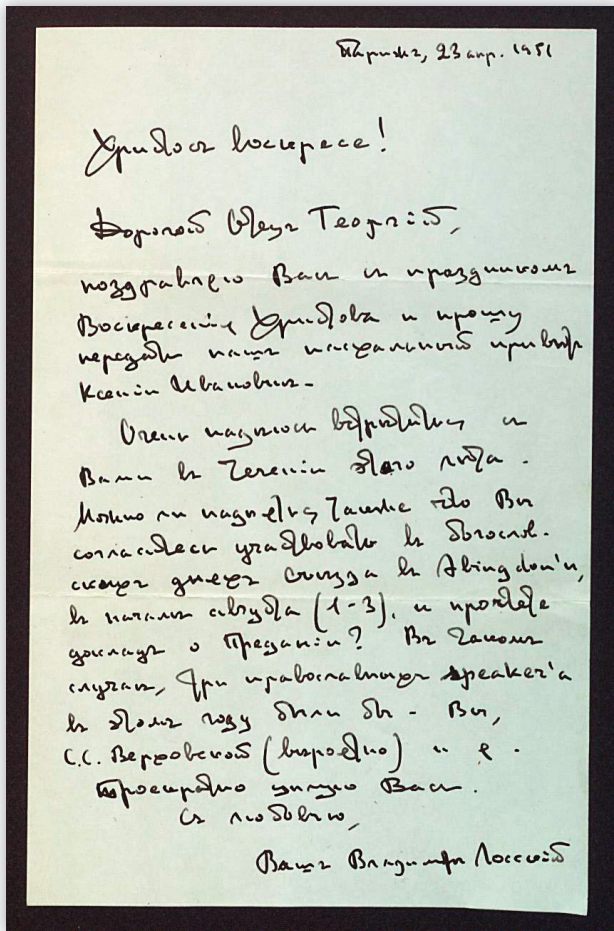 Парижъ, 23 апр. 1951
Христосъ Воскресе!
Дорогой Отецъ Георгій,
поздравляю Васъ съ праздникомъ
Воскресенія Христова и прошу
передать нашъ пасхальный привѣтъ
Ксеніи Ивановнѣ.
Очень надѣюсь встрѣтиться съ
Вами въ теченіи этого лѣта.
Можно ли надѣяться также что Вы
согласитесь участвовать въ богослов-
скихъ дняхъ съѣзда въ Abingdon'ѣ,
въ началѣ августа (1-3), и прочтете
докладъ о Преданіи? Въ такомъ
случаѣ, три православныхъ speaker'а
въ этомъ году были бы - Вы,
С.С. Верховской (вѣроятно) и я.
Троекратно цѣлую Васъ.
Съ любовью,
Вашъ Владиміръ Лосскій